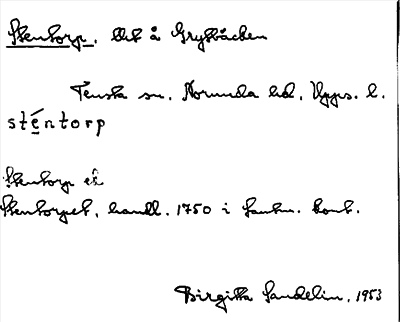 Stentorp, utt å Gryttbäcken
Tensta sn, Norunda hd, Upps. l.
sténtorp
Stentorp
Stentorpet, handl. 1750 i Lantm. kont.
Birgitta Sandelin, 1953